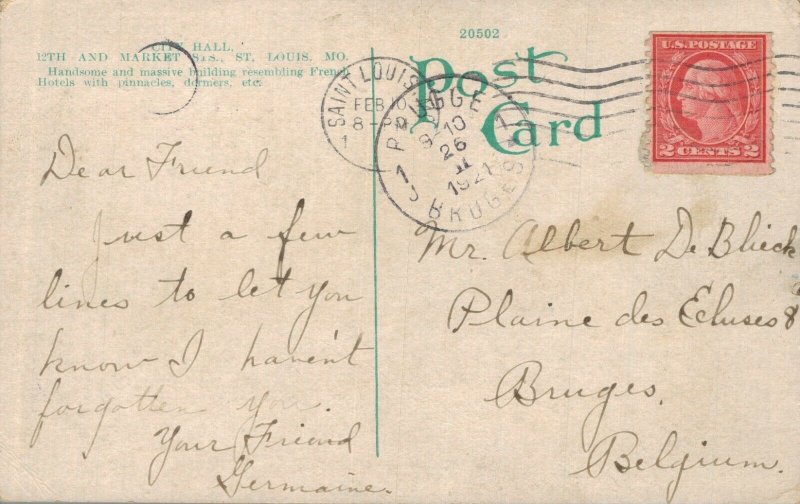 20502
CITY HALL,
12TH AND MARKET STS., ST, LOUIS, MO.
Handsome and massive building resembling French
Hotels with pinnacles, dormers, etc.
Post
Card
U.S. POSTAGE
2 CENTS 2
SAINT LOUIS
FEB 10
8-PM
1
BRUGGE
9-10
26
II
1921
BRUGES
1
1
Dear Friend
Just a few
lines to let you
know I haven't
forgotten you.
Your Friend
Germaine.
Mr. Albert De Blieck
Plaine des Ecluses 8
Bruges,
Belgium.